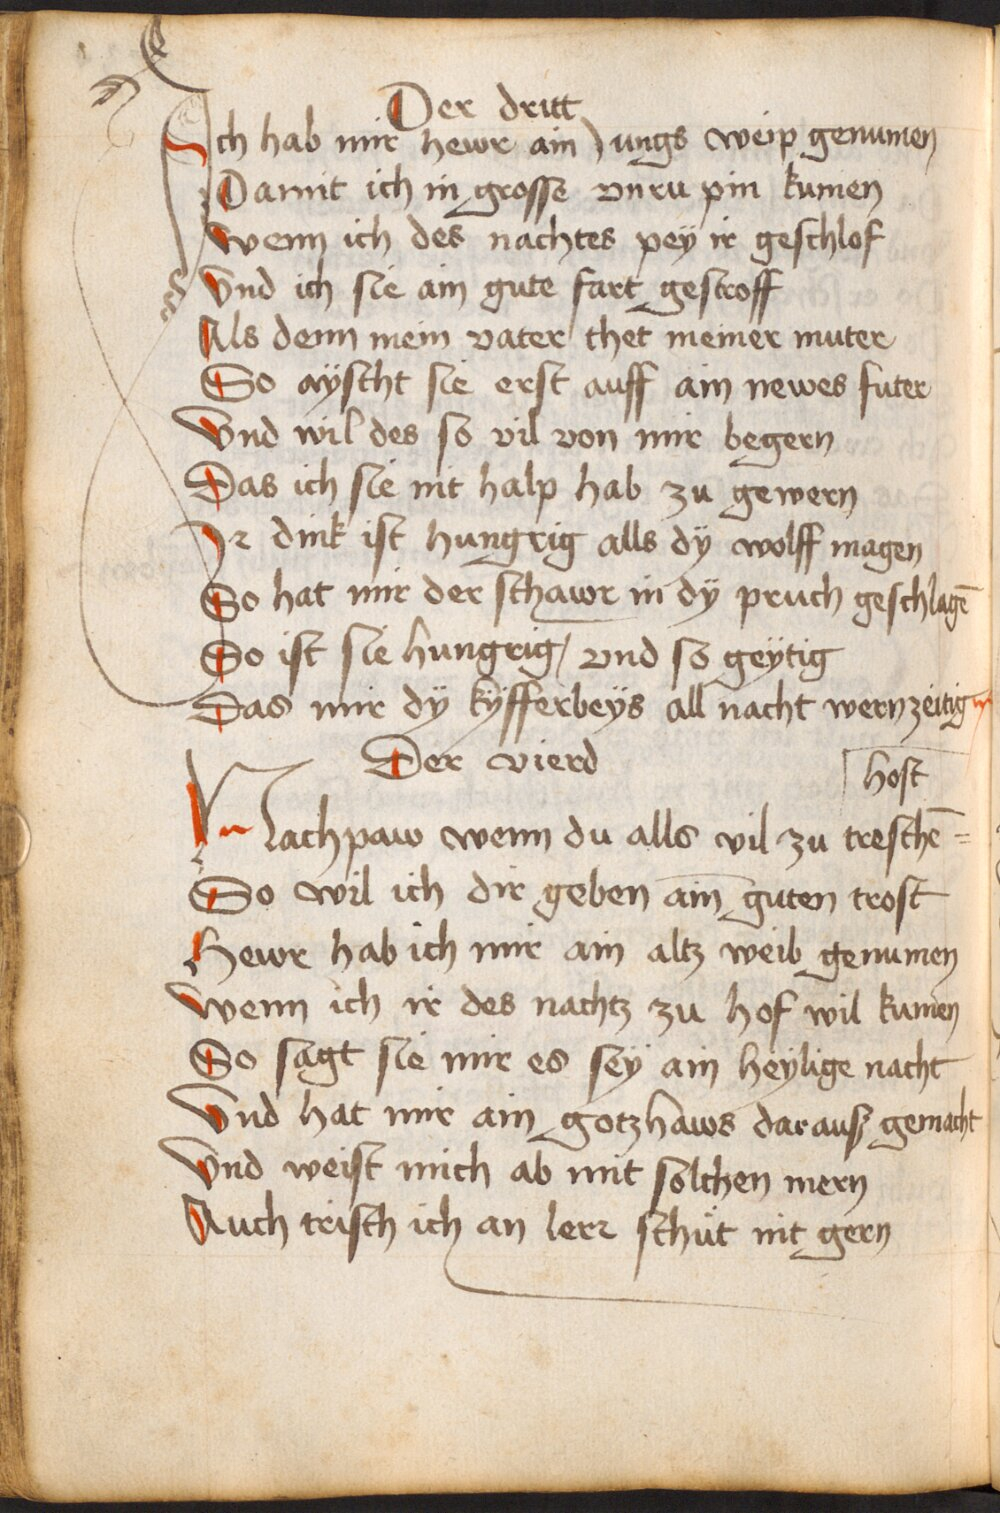 Der dritt
Ich hab mir hewr ain Jungs weip genumen
Damit ich in grosse vnru pin kumen
Wenn ich des nachtes pey ir geschlof
Vnd ich sie ain gute fart gestroff
Als denn mein vater thet meiner muter
So ayscht sie erst auff ain newes futer
Vnd wil des so vil von mir begern
Das ich sie nit halp hab zu gewern
Ir dink ist hungrig alls dy wolff magen
So hat mir der schawr in dy pruch geschlagē
So ist sie hungrig / vnd so geytig
Das mir dy kyfferbeys all nacht wern zeitig
Der vierd
host
Nachpaw wenn du alls vil zu treschē =
So wil ich dir geben ain guten trost
Hewr hab ich mir ain altz weib genumen
Wenn ich ir des nachtz zu hof wil kumen
So sagt sie mir es sey ain heylige nacht
Vnd hat mir ain gotzhaws darauß gemacht
Vnd weist mich ab mit solchen mern
Auch trisch ich an lerr schüt nit gern